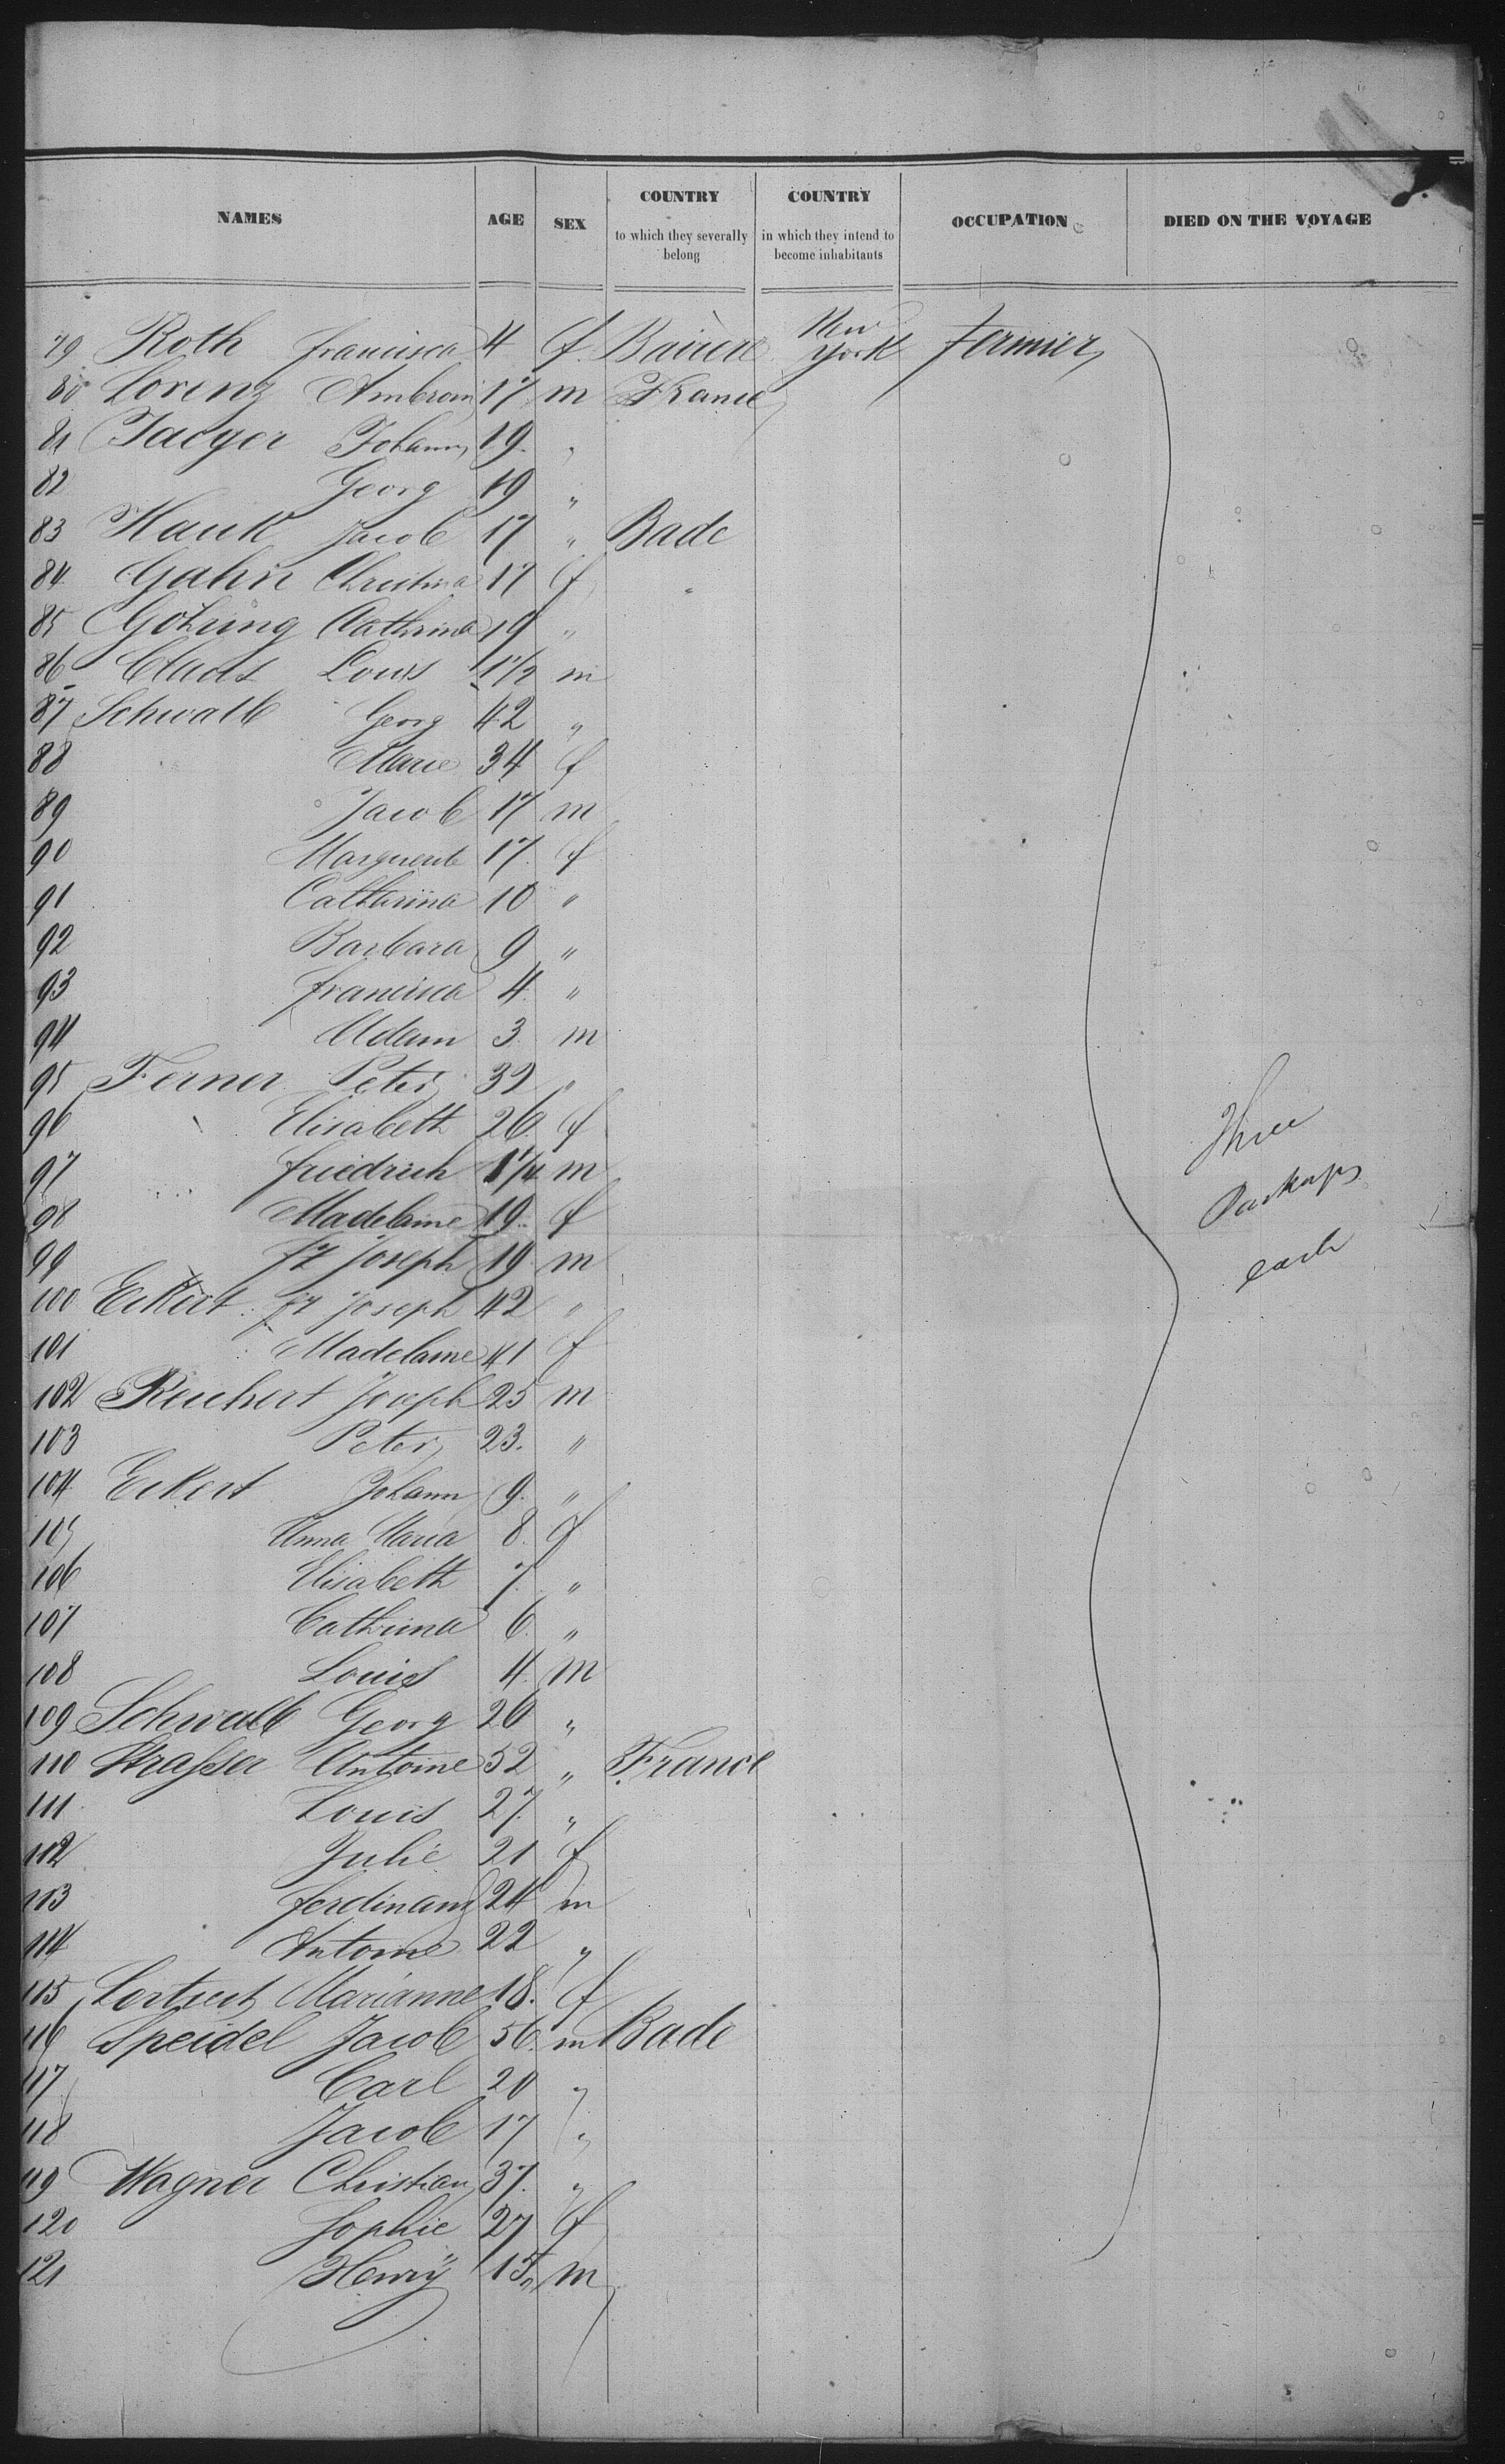 NAMES AGE SEX COUNTRY to which they severally belong COUNTRY in which they intend to become inhabitants OCCUPATION DIED ON THE VOYAGE
79 Roth Francisca 4 f. Baviere New York Fermier
80 Lorenz Ambrois 17 m France
81 Jaeger Johann 19 "
82 Georg 19 "
83 Hauk Jacob 17 " Bade
84 Gahn Christina 17 f "
85 Cathrina 19 "
86 Louis 1 1/2 m
87 Schwalb Georg 42 "
88 Marie 34 f
89 Jacob 17 m
90 Marguerite 17 f
91 Catharina 10 "
92 Barbara 9 "
93 Francisca 4 "
94 Adam 3 m
95 Ferner Peter 32 "
96 Elisabeth 26 f
97 Friedrich 1 1/4 m
98 Madelaine 19 f
99 fz Joseph 19 m
100 Eckert fz Joseph 42 "
101 Madelaine 41 f
102 Reichert Joseph 25 m
103 Peter 23. "
104 Eckert Johann 9. "
105 Anna Maria 8. f
106 Elisabeth 7. "
107 Cathrina 6 "
108 Louis 4 m
109 Schwalb Georg 20 "
110 Strasser Antoine 52 " France
111 Louis 27 "
112 Julie 21 f
113 Ferdinand 24 m
114 Antoine 22 "
115 Marianne 18. f
116 Speidel Jacob 56. m Bade
117 Carl 20 "
118 Jacob 17 "
119 Wagner Christian 37. "
120 Sophie 27 f
121 Henry 15 m
Three
Packages
each